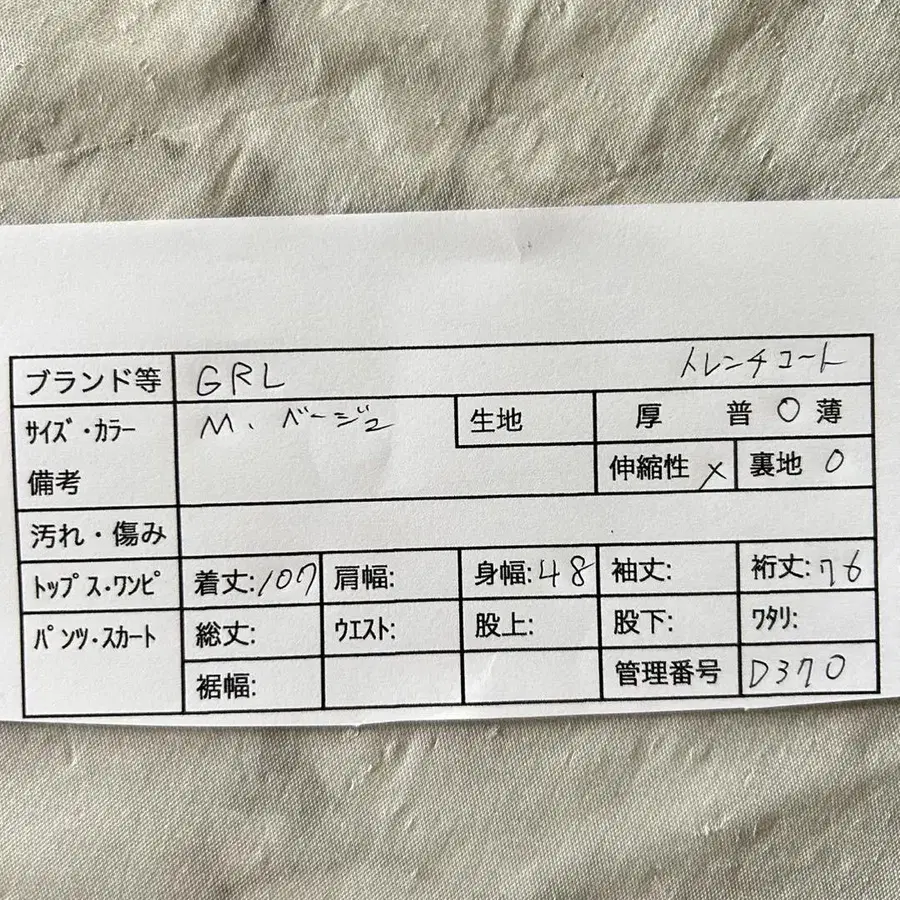 ブランド等 GRL トレンチコート
サイズ・カラー M、ベージュ 生地 厚 普 〇 薄
備考 伸縮性 × 裏地 〇
汚れ・傷み
トップス・ワンピ 着丈:107 肩幅: 身幅:48 袖丈: 裄丈:76
パンツ・スカート 総丈: ウエスト: 股上: 股下: ワタリ:
裾幅: 管理番号 D370